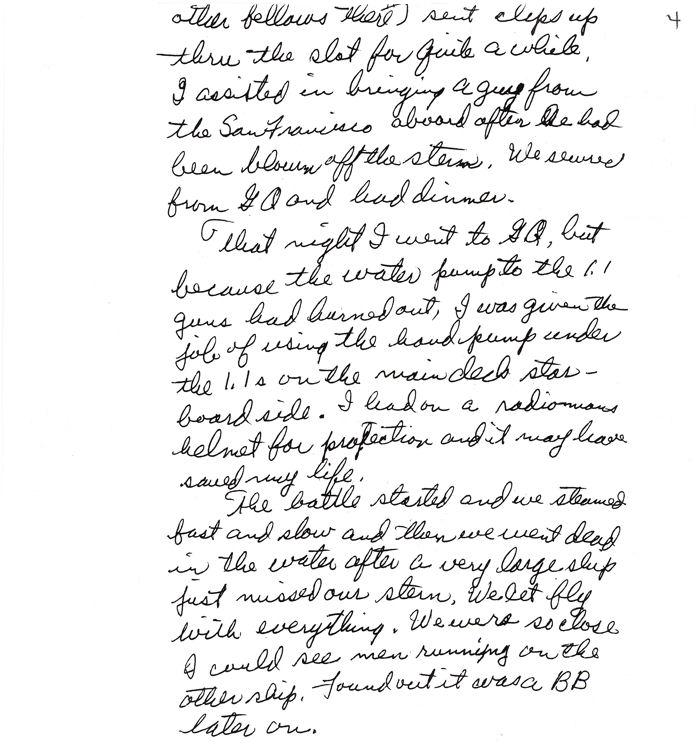 other fellows there) sent clips up 4
thru the slot for quite a while.
I assisted in bringing a guy from
the San Francisco aboard after he had
been blown off the stern. We secured
from GQ and had dinner.
That night I went to GQ, but
because the water pump to the 1.1
guns had burned out, I was given the
job of using the hand pump under
the 1.1s on the main deck star-
board side. I had on a radiomans
helmet for protection and it may have
saved my life.
The battle started and we steamed
fast and slow and then we went dead
in the water after a very large ship
just missed our stern. We let fly
with everything. We were so close
I could see men running on the
other ship. Found out it was a BB
later on.